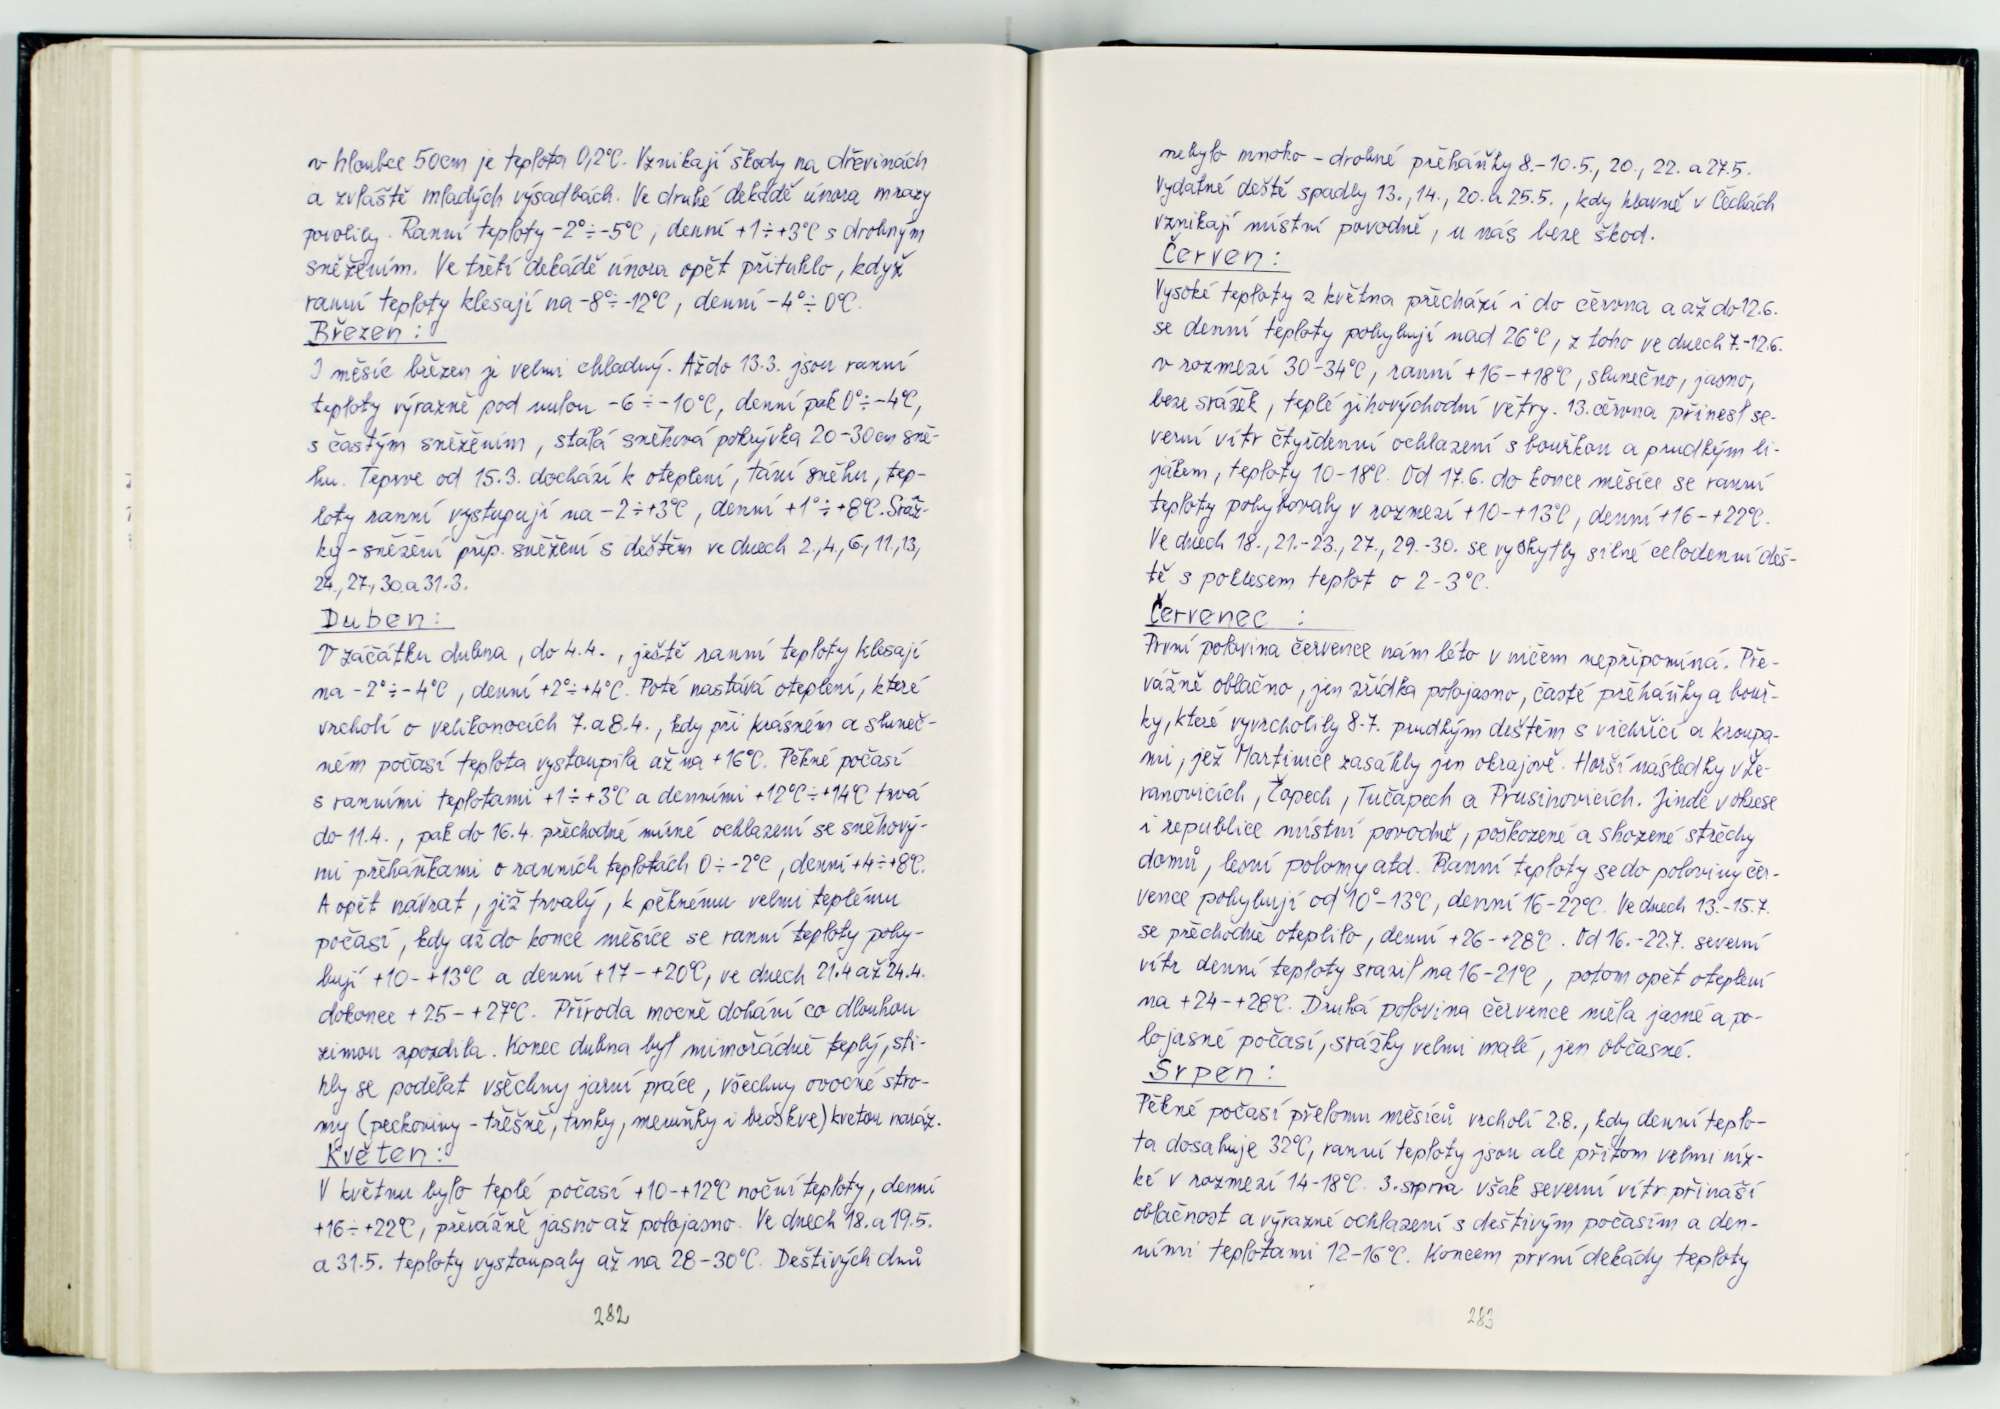 v hloubce 50cm je teplota 0,2°C. Vznikají škody na dřevinách
a zvláště mladých výsadbách. Ve druhé dekádě února mrazy
povolily. Ranní teploty -2°÷-5°C, denní +1÷+3°C s drobným
sněžením. Ve třetí dekádě února opět přituhlo, když
ranní teploty klesají na -8°÷-12°C, denní -4°÷0°C.
Březen:
I měsíc březen je velmi chladný. Až do 13.3. jsou ranní
teploty výrazně pod nulou -6÷-10°C, denní pak 0°÷-4°C,
s častým sněžením, stálá sněhová pokrývka 20-30cm sně-
hu. Teprve od 15.3. dochází k oteplení, tání sněhu, tep-
loty ranní vystupují na -2÷+3°C, denní +1°÷+8°C. Sráž-
ky - sněžení příp. sněžení s deštěm ve dnech 2.,4.,6.,11.,13.,
24., 27., 30. a 31.3.
Duben:
V začátku dubna, do 4.4., ještě ranní teploty klesají
na -2°÷-4°C, denní +2°÷+4°C. Poté nastává oteplení, které
vrcholí o velikonocích 7. a 8.4., kdy při krásném a sluneč-
ném počasí teplota vystoupila až na +16°C. Pěkné počasí
s ranními teplotami +1÷+3°C a denními +12°C÷+14°C trvá
do 11.4., pak do 16.4. přechodné mírné ochlazení se sněhový-
mi přeháňkami o ranních teplotách 0÷-2°C, denní +4÷+8°C.
A opět návrat, již trvalý, k pěknému velmi teplému
počasí, kdy až do konce měsíce se ranní teploty pohy-
bují +10-+13°C a denní +17-+20°C, ve dnech 21.4 až 24.4.
dokonce +25-+27°C. Příroda mocně dohání co dlouhou
zimou zpozdila. Konec dubna byl mimořádně teplý, sti-
hly se podělat všechny jarní práce, všechny ovocné stro-
my (peckoviny - třešně, trnky, meruňky i broskve) kvetou naráz.
Květen:
V květnu bylo teplé počasí +10-+12°C noční teploty, denní
+16÷+22°C, převážně jasno až polojasno. Ve dnech 18. a 19.5.
a 31.5. teploty vystoupaly až na 28-30°C. Deštivých dnů
282
nebylo mnoho - drobné přeháňky 8.-10.5., 20., 22. a 27.5.
Vydatné deště spadly 13., 14., 20. a 25.5., kdy hlavně v Čechách
vznikají místní povodně, u nás beze škod.
Červen:
Vysoké teploty z května přechází i do června a až do 12.6.
se denní teploty pohybují nad 26°C, z toho ve dnech 7.-12.6.
v rozmezí 30-34°C, ranní +16-+18°C, slunečno, jasno,
beze srážek, teplé jihovýchodní větry. 13. června přinesl se-
verní vítr čtyřdenní ochlazení s bouřkou a prudkým li-
jákem, teploty 10-18°C. Od 17.6. do konce měsíce se ranní
teploty pohybovaly v rozmezí +10-+13°C, denní +16-+22°C.
Ve dnech 18., 21.-23., 27., 29.-30. se vyskytly silné celodenní deš-
tě s poklesem teplot o 2-3°C.
Červenec :
První polovina července nám léto v ničem nepřipomíná. Pře-
vážně oblačno, jen zřídka polojasno, časté přeháňky a bouř-
ky, které vyvrcholily 8.7. prudkým deštěm s vichřicí a kroupa-
mi, jež Martinice zasáhly jen okrajově. Horší následky v Že-
ranovicích, Žopech, Tučapech a Prusinovicích. Jinde v okrese
i republice místní povodně, poškozené a shozené střechy
domů, lesní polomy atd. Ranní teploty se do poloviny čer-
vence pohybují od 10°-13°C, denní 16-22°C. Ve dnech 13.-15.7.
se přechodně oteplilo, denní +26-+28°C. Od 16.-22.7. severní
vítr denní teploty srazil na 16-21°C, potom opět oteplení
na +24-+28°C. Druhá polovina července měla jasné a po-
lojasné počasí, srážky velmi malé, jen občasné.
Srpen:
Pěkné počasí přelomu měsíců vrcholí 2.8., kdy denní teplo-
ta dosahuje 32°C, ranní teploty jsou ale přitom velmi níz-
ké v rozmezí 14-18°C. 3. srpna však severní vítr přináší
oblačnost a výrazné ochlazení s deštivým počasím a den-
ními teplotami 12-16°C. Koncem první dekády teploty
283